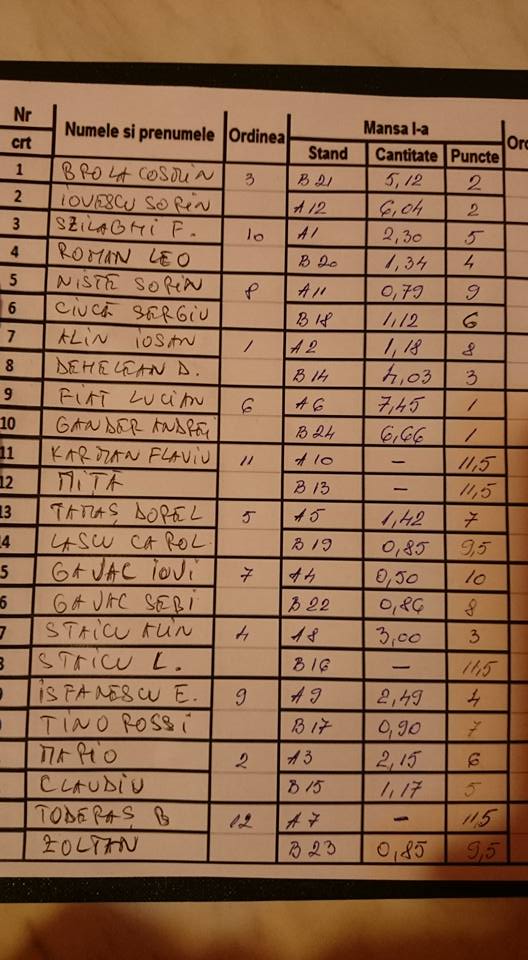 Nr crt Numele si prenumele Ordinea Mansa I-a Ord
Stand Cantitate Puncte
1 BROLA COSMIN 3 B21 5,12 2
2 IOVESCU SORIN A12 6,04 2
3 SZILAGHI F. 10 A1 2,30 5
4 ROMAN LEO B20 1,34 4
5 NISTE SORIN 8 A11 0,79 9
6 CIUCĂ SERGIU B18 1,12 6
7 ALIN IOSAN 1 A2 1,18 8
8 DEHELEAN D. B14 4,03 3
9 FIAT LUCIAN 6 A6 7,45 1
10 GANDER ANDREI B24 6,66 1
11 KARMAN FLAVIU 11 A10 — 11,5
12 MITĂ B13 — 11,5
13 TAMAȘ DOREL 5 A5 1,42 7
14 LASCU CAROL B19 0,85 9,5
5 GAVAC IOVI 7 A4 0,50 10
6 GAVAC SEBI B22 0,86 8
7 STAICU ALIN 4 A8 3,00 3
8 STAICU L. B16 — 11,5
9 ISFANESCU E. 9 A9 2,49 4
TINO ROSSI B17 0,90 7
MARIO 2 A3 2,15 6
CLAUDIU B15 1,17 5
TODERAȘ B 12 A7 — 11,5
ZOLTAN B23 0,85 9,5